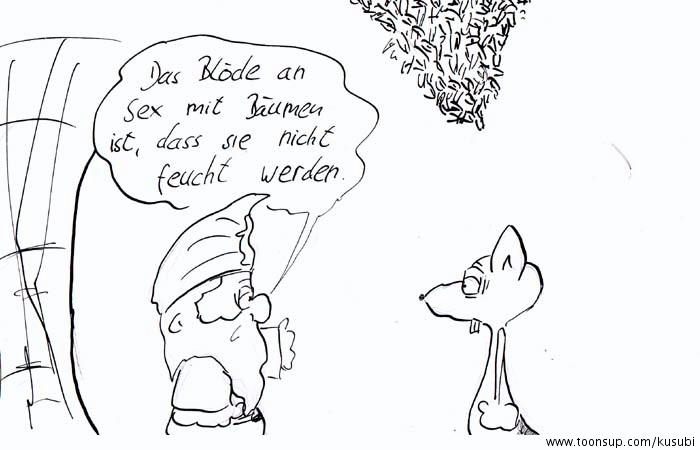 Das Blöde an
Sex mit Bäumen
ist, dass sie nicht
feucht werden.
www.toonsup.com/kusubi